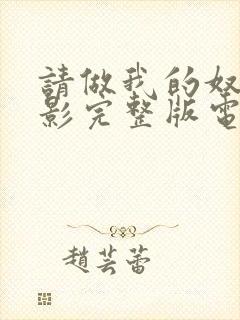 請做我的奴
影完整版電
趙芸蕾